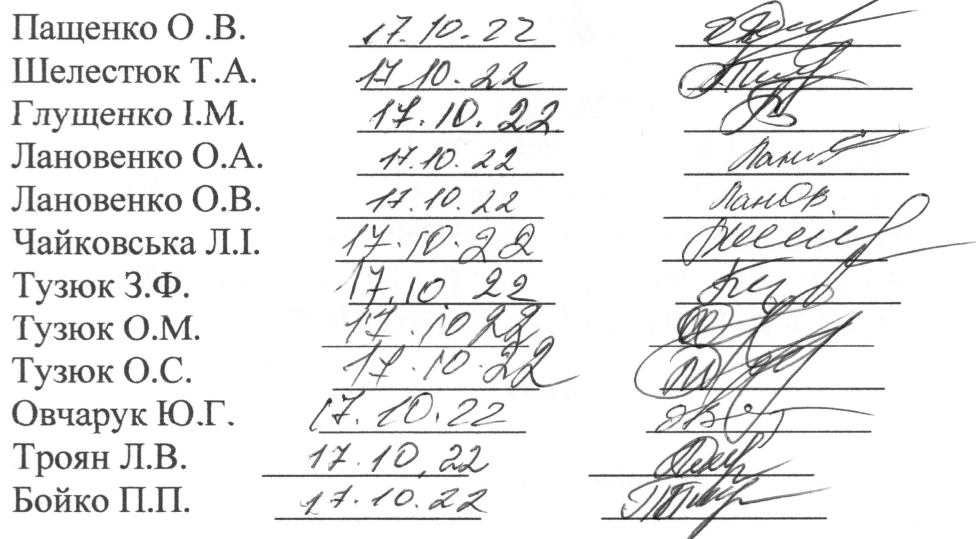 Пащенко О .В. 17.10.22
Шелестюк Т.А. 17.10.22
Глущенко І.М. 17.10.22
Лановенко О.А. 17.10.22
Лановенко О.В. 17.10.22 ЛанОв
Чайковська Л.І. 17.10.22
Тузюк З.Ф. 17.10.22
Тузюк О.М. 17.10 22
Тузюк О.С. 17.10.22
Овчарук Ю.Г. 17.10.22
Троян Л.В. 17.10.22
Бойко П.П. 17.10.22